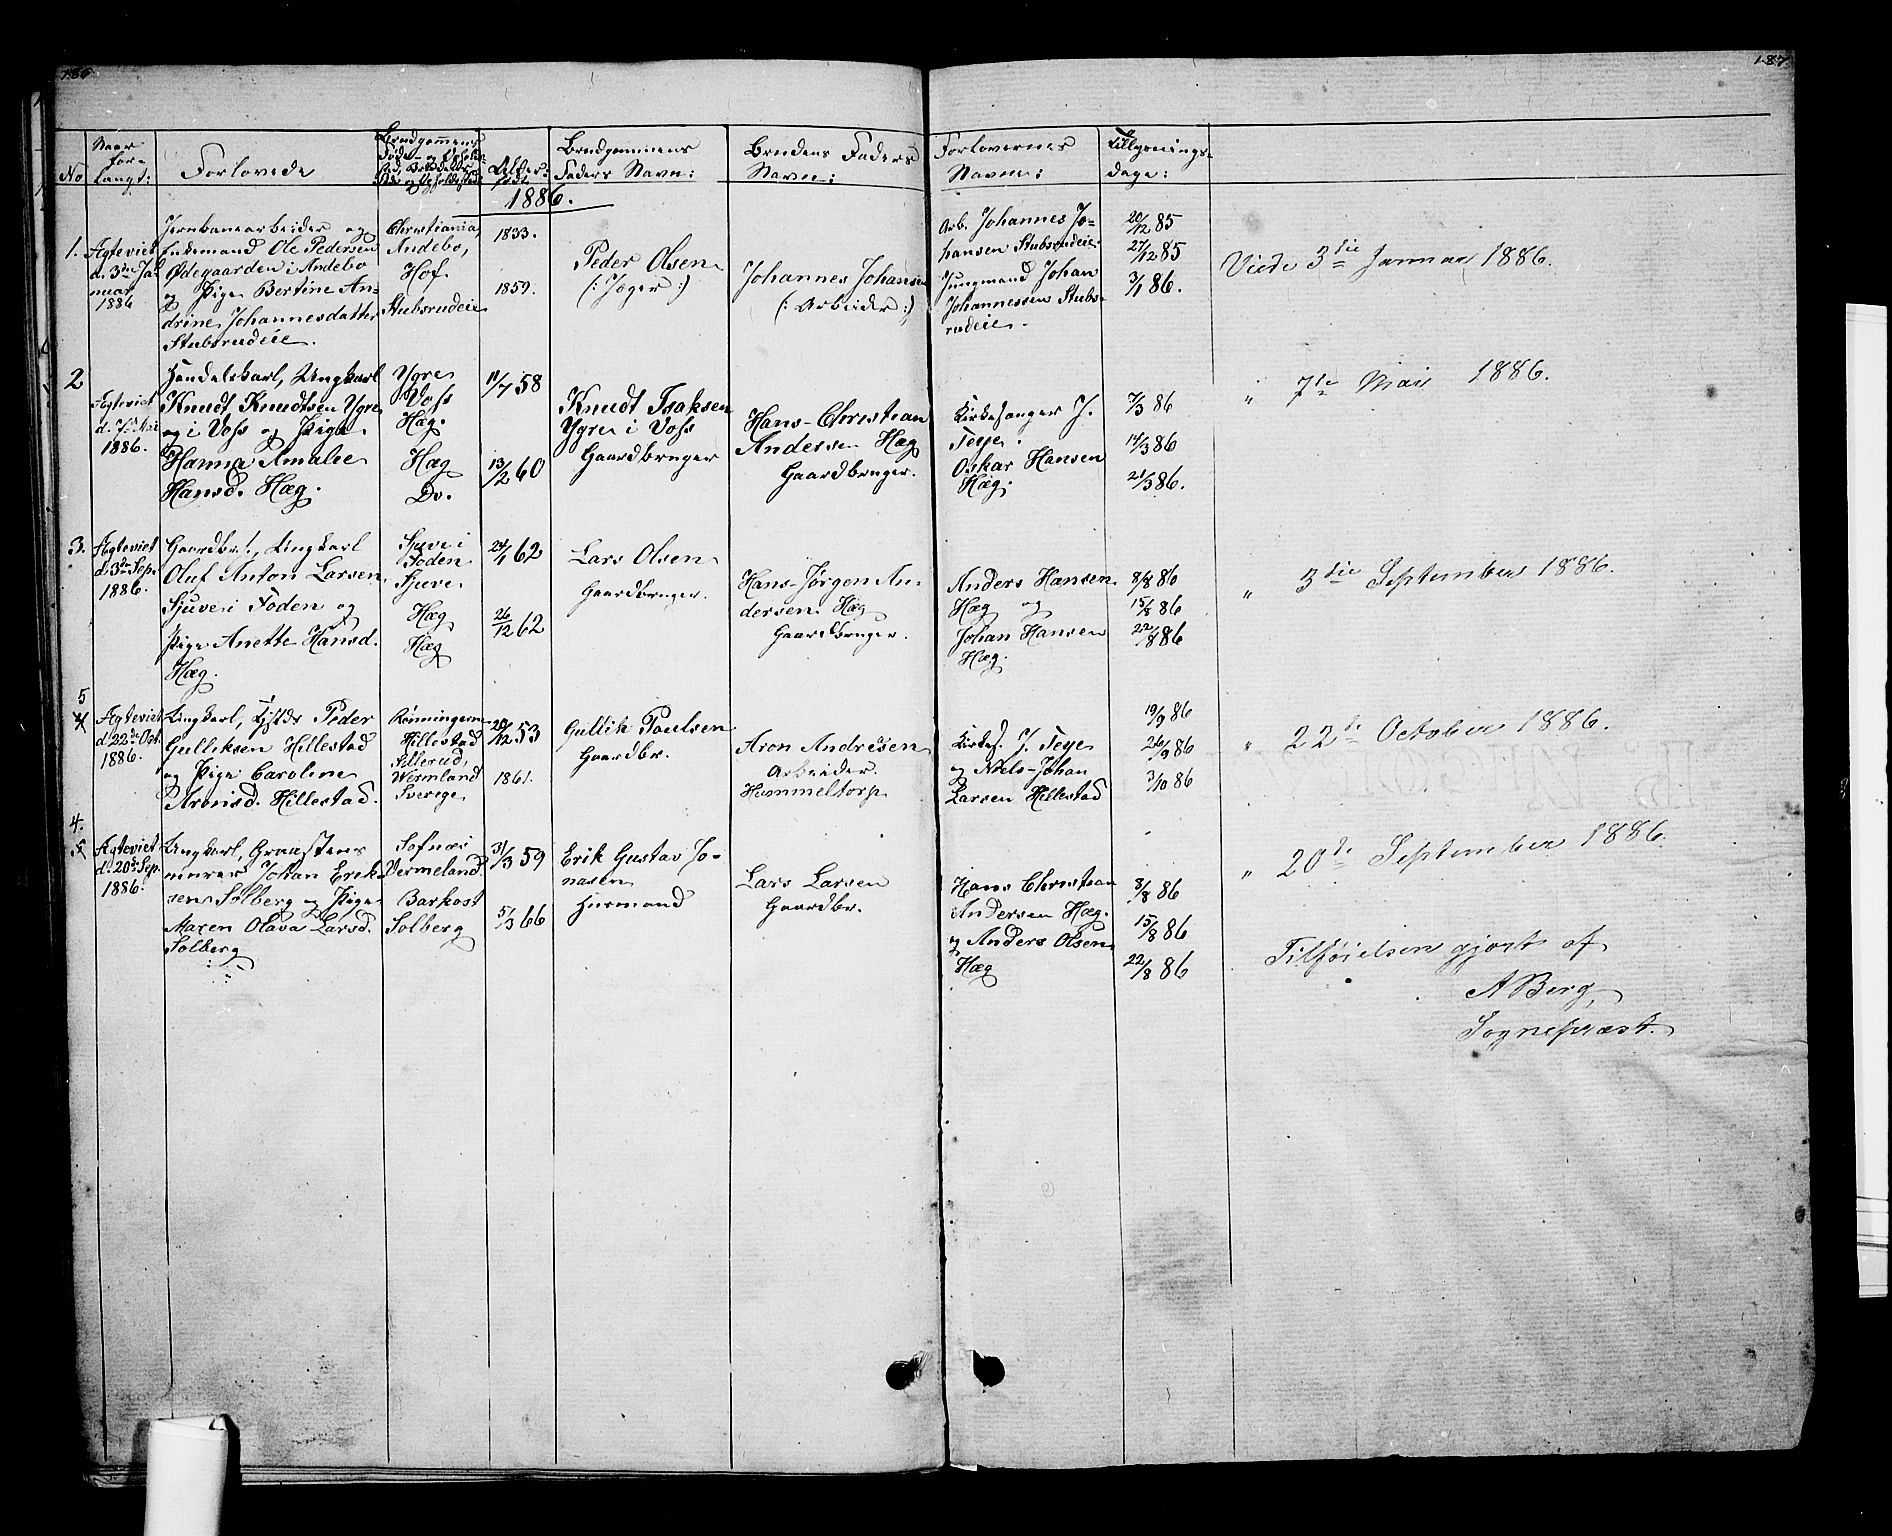 186
187.
No
Naar
for-
langt:
Forlovede
Brudgommens
Føde- og Opholds-
Alder:
Brudgommens
Faders Navn:
Brudens Faders
Navn:
Forlovernes
Navne:
Tillysnings-
dage:
1886.
1.
Ægteviet
d. 3die Ja-
nuar
1886
Jernbanearbeider og
Enkemand Ole Pedersen
Ødegaarden i Andebo
og Pige Bertine An-
drine Johannesdatter
Stubsrudeie.
Christiania,
Andebo,
Hof.
Stubsrudeie
1833.
1859.
Peder Olsen
(: Jæger :)
Johannes Johansen
(: Arbeider :)
Arb. Johannes Jo-
hansen Stubsrudeie
Jungmand Johan
Johannessen Stubs-
rudeie.
20/12 85
27/12 85
3/1 86.
Viede 3die Januar 1886.
2
Ægteviet
d. 7de Mai
1886.
Handelskarl, Ungkarl
Knudt Knudtsen Ygre
i Voss og Pige
Hanna Amalie
Hansd. Hæg.
Ygre
Voss
Hæg.
Hæg
Do.
11/7 58
13/2 60
Knudt Isaksen
Ygre i Voss
Gaardbruger
Hans-Christian
Andersen Hæg
Gaardbruger.
Kirkesanger J.
Teye.
Oskar Hansen
Hæg.
7/3 86
14/3 86
21/3 86.
" 7de Mai 1886.
3.
Ægteviet
d. 3die Sep.
1886.
Gaardbr., Ungkarl
Oluf Anton Larsen
Sjuve i Foden og
Pige Anette Hansd.
Hæg.
Sjuve i
Foden
Sjuve.
Hæg
Hæg
24/1 62
26/12 62
Lars Olsen
Gaardbruger.
Hans-Jørgen An-
dersen Hæg
Gaardbruger.
Anders Hansen
Hæg og
Johan Hansen
Hæg.
8/8 86
15/8 86
22/8 86
" 3die September 1886.
5
4
Ægteviet
d. 22de Oct.
1886.
Ungkarl, Peder
Gulliksen Hillestad
og Pige Caroline
Aronsd. Hillestad.
Rønningen
Hillestad
Sillerud,
Wermland
Sverige
20/12 53
1861.
Gullik Paulsen
Gaardbr.
Aron Andresen
Arbeider.
Hammeltorp
Kirkes. J. Teye
og Niels-Johan
Larsen Hillestad
19/9 86
26/9 86
3/10 86
" 22de October 1886.
4.
5
Ægteviet
d. 20de Sep.
1886.
Ungkarl, Graastens
murer Johan Erik-
sen Solberg og Pige
Maren Olava Larsd.
Solberg
Vermeland
Barkost
Solberg
31/3 59
5/3 66
Erik Gustav Jo-
nasen
Husmand
Lars Larsen
Gaardbr.
Hans Christian
Andersen Hæg.
og Anders Olsen
Hæg
8/8 86
15/8 86
22/8 86
" 20de September 1886.
Tilføielsen gjort af
A Berg,
Sognepræst.